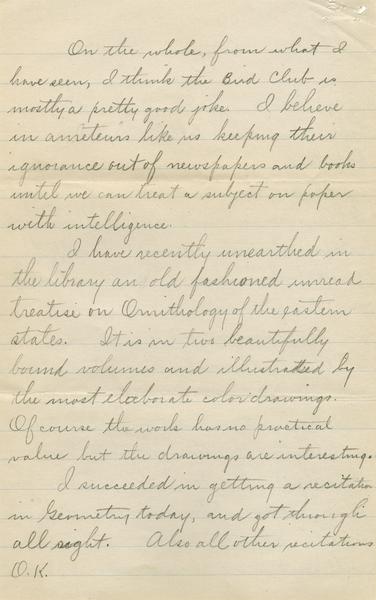 On the whole, from what I
have seen, I think the Bird Club is
mostly a pretty good joke. I believe
in amateurs like us keeping their
ignorance out of newspapers and books
until we can treat a subject on paper
with intelligence.
I have recently unearthed in
the library an old fashioned unread
treatise on Ornithology of the eastern
states. It is in two beautifully
bound volumes and illustrated by
the most elaborate color drawings.
Of course the work has no practical
value but the drawings are interesting.
I succeeded in getting a recitation
in Geometry today, and got through
all right. Also all other recitations
O.K.